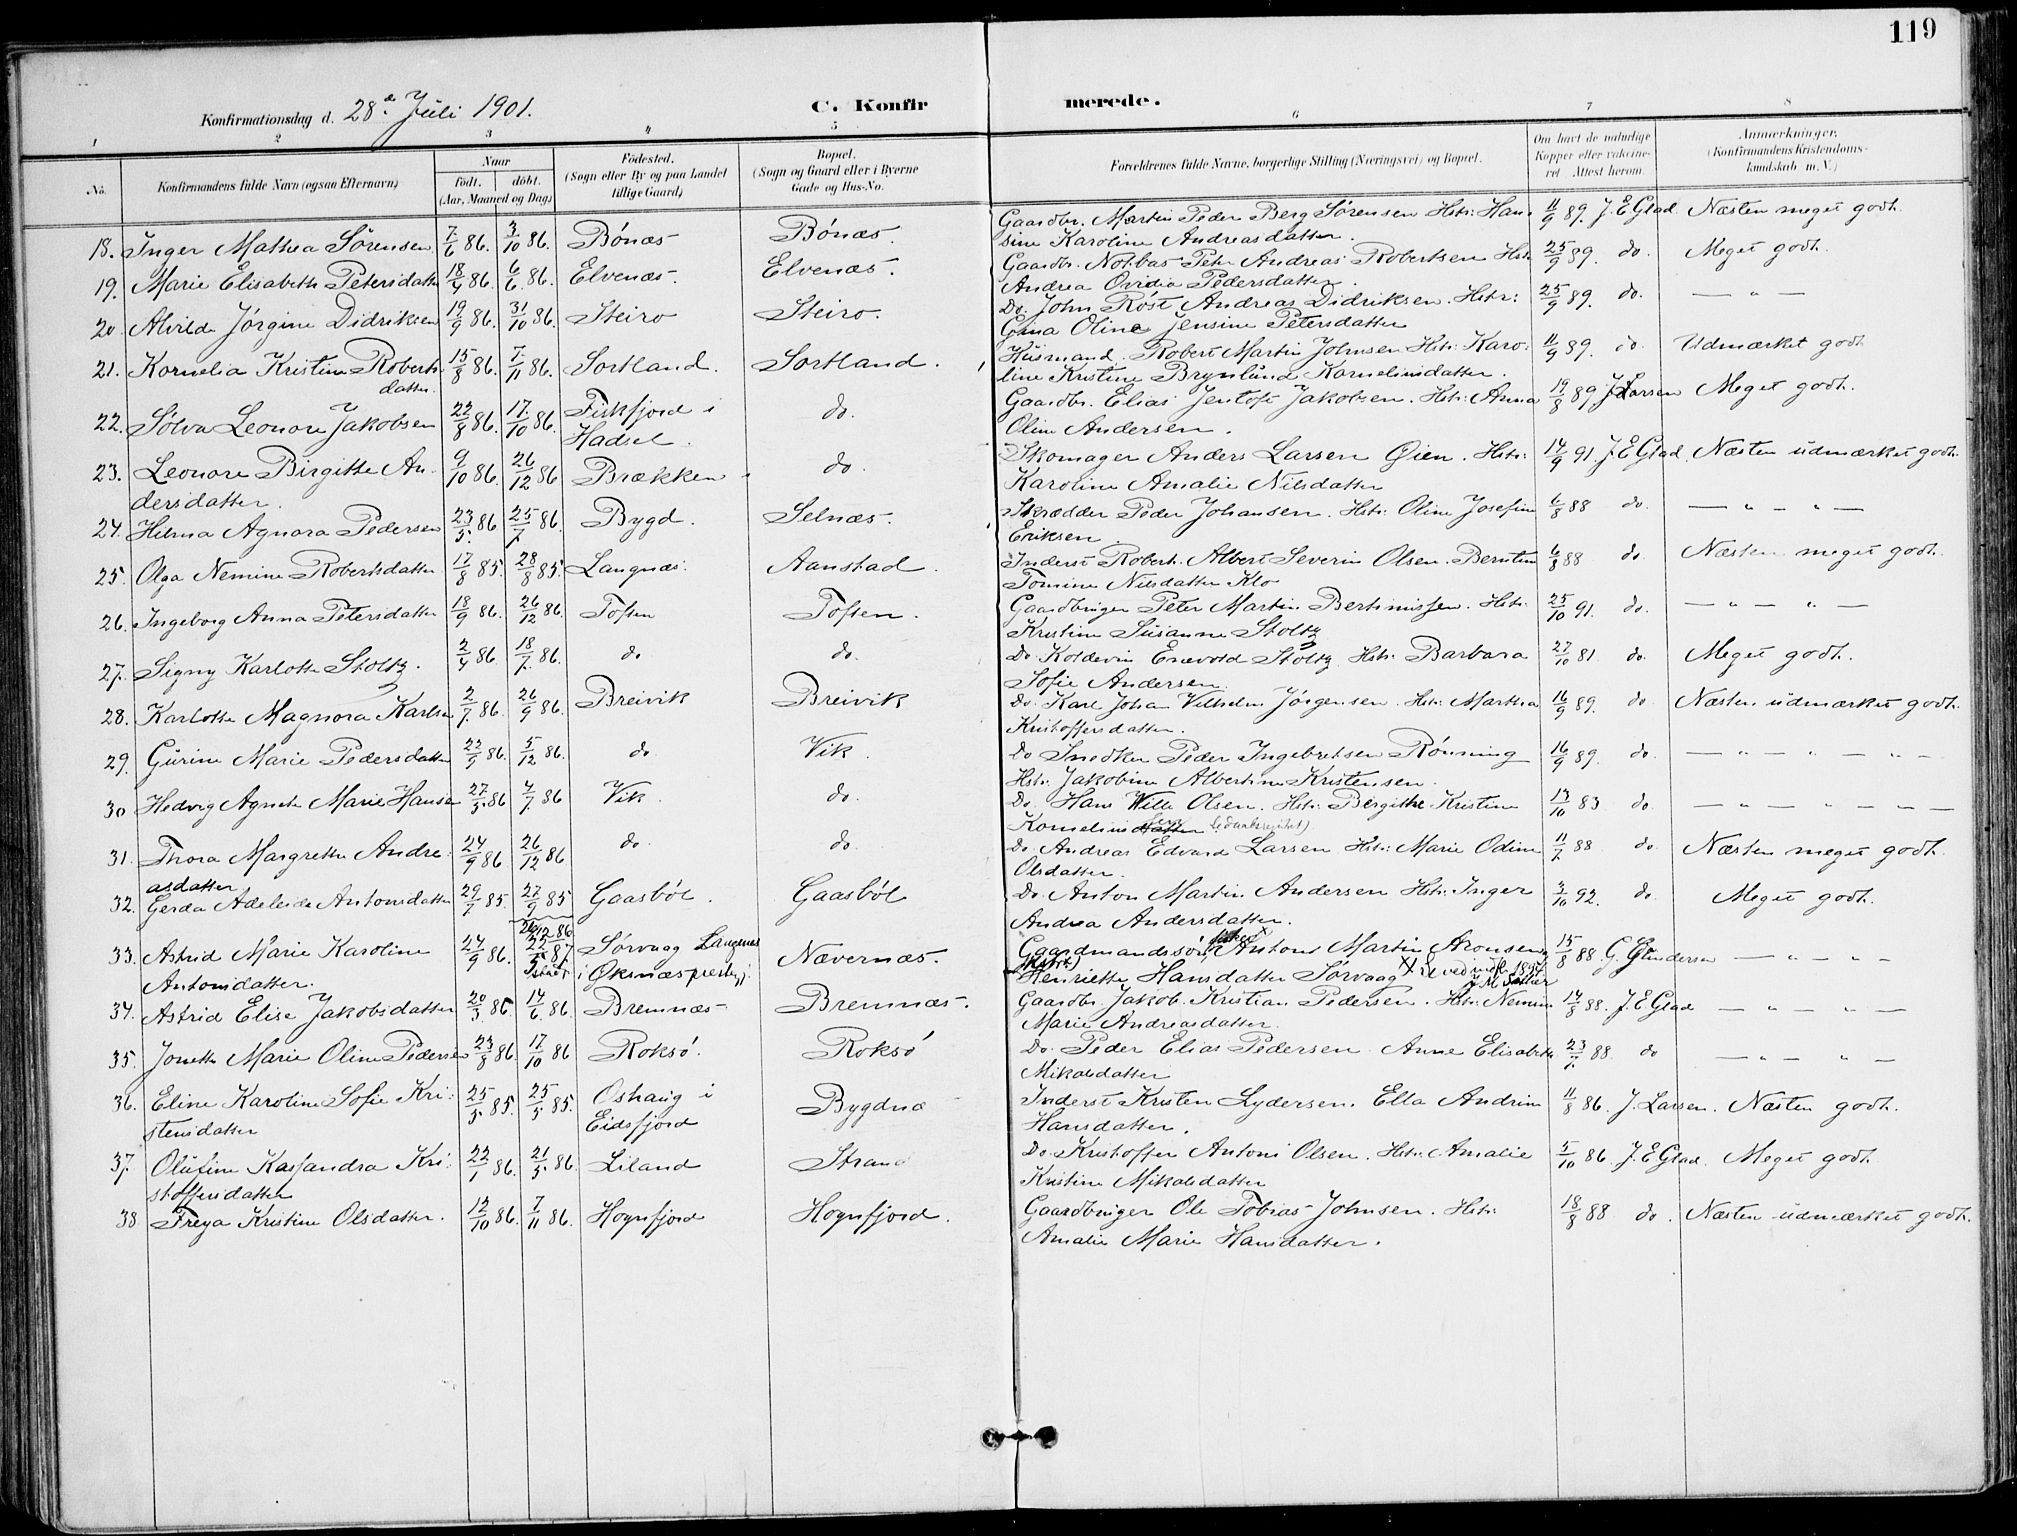 119
Konfirmationsdag d. 28de Juli 1901. C. Konfirmerede.
1 2 3 4 5 6 7 8
No. Konfirmandens fulde Navn (ogsaa Efternavn) Naar født. døbt. (Aar, Maaned og Dag) Fødested. (Sogn eller By og paa Landet tillige Gaard) Bopæl. (Sogn og Gaard eller i Byerne Gade og Hus-No. Forældrenes fulde Navne, borgerlige Stilling (Næringsvei) og Bopæl. Om havt de naturlige Kopper eller vaccineret. Attest herom. Anmærkninger. (Konfirmandens Kristendomskundskab m. V.)
18. Inger Mathea Sørensen 7/6 86. 3/10 86. Bönæs Bönæs. Gaardbr. Martin Peder Berg Sørensen Hstr: Han 11/9 89. J. E Glad Næsten meget godt.
sine Karoline Andreasdatter.
19. Marie Elisabeth Petersdatter 18/4 86. 6/6 86. Elvenæs. Elvenæs. Gaardbr. Notbas Peter Andreas Robertsen Hstr 25/9 89. do. Meget godt.
Andrea Ovidia Pedersdatter.
20. Alvilde Jørgine Didriksen 19/9 86. 31/10 86. Steiro Steiro. Do. John Röst Andreas Didriksen. Hstr: 25/9 89. do. — " —
Gina Oline Jensine Petersdatter
21. Kornelia Kristine Roberts 15/8 86. 7/11 86. Sortland. Sortland. Husmand. Robert Martin Johnsen Hstr: Karo: 11/9 89. do Udmærket godt
datter. line Kristine Brynlund Korneliusdatter.
22. Sölva Leonore Jakobsen 22/8 86. 17/10 86. Fiskfjord i do. Gaardbr. Elias Jentoft Jakobsen. Hstr: Anna 19/8 89 J Larsen Meget godt.
Hadsel. Oline Andersen.
23. Leonore Birgitte An- 9/10 86. 26/12 86 Brækken do. Skomager Anders Larsen Øien. Hstr: 14/9 91. J. E Glad. Næsten udmærket godt.
dersdatter. Karoline Amalie Nilsdatter
24. Hilma Agnora Pedersen 23/5 86 25/7 86. Bygd. Selnæs. Skrædder Peder Johansen. Hstr: Oline Josefine 6/8 88 do — " — " —
Eriksen.
25. Olga Nemine Robertsdatter 17/8 85. 28/8 85. Langnæs. Aanstad. Inderst Robert Albert Severin Olsen. Berntine 6/8 88 do Næsten meget godt.
Tomine Nilsdatter Klo
26. Ingeborg Anna Petersdatter 18/9 86. 26/12 86. Toften Toften. Gaardbruger Peter Martin Bertinussen. Hstr: 25/10 91. do. — " — " —
Kristine Susanne Stoltz
27. Signy Karlotte Stoltz. 2/4 86. 18/7 86. do do. Do. Koldevin Enevold Stoltz. Hstr: Barbara 27/10 81 do. Meget godt.
Sofie Andersen.
28. Karlotte Magnora Karlsen 2/7 86. 26/9 86. Breivik Breivik Do. Karl Johan Vilhelm Jørgensen. Hstr: Martha 16/9 89. do Næsten udmærket godt.
Kristoffersdatter.
29. Gurine Marie Pedersdatter 22/9 86. 5/12 86. do Vik. Do Snedker Peder Ingebretsen Rönning 16/9 89. do. — " — " — " —
Hstr: Jakobine Albertine Kristensen.
30 Hedvig Agnete Marie Hansen 27/5 86 4/7 86 Vik. do. Do. Hans Wille Olsen. Hstr: Birgithe Kristine 13/10 83 do — " — " — " —
Kornelius datter
31. Thora Margrethe Andre: 24/9 86. 26/12 86 do. do. Do Andreas Edvard Larsen Hstr: Marie Odine 11/7 88 do Næsten meget godt.
asdatter Olsdatter.
32. Gerda Adeleide Antonsdatter 29/7 85. 27/9 85 Gaasböl. Gaasböl Do. Anton Martin Andersen Hstr: Inger 3/10 92. do Meget godt.
Andrea Andersdatter.
33. Astrid Marie Karoline 24/9 86. 26/12 86 22/5 87 Sørvaag Langenes Nævernæs. Gaardmandssön Antoni Martin Aronsen 15/8 88 G. Gundersen — " — " —
Antonsdatter. i Øksnæs præstegj. Henriette Hansdatter Sørvaag
34. Astrid Elise Jakobsdatter 20/3 86 14/6 86. Bremnæs Bremnæs. Gaardbr. Jakob Kristian Pedersen. Hstr: Nemine 14/8 88. J. E Glad — " — " —
Marie Andreasdatter.
35. Jonette Marie Oline Pedersen 23/8 86. 17/10 86 Roksö. Roksö Do. Peder Elias Pedersen. Anne Elisabeth 23/7 88. do — " — " —
Mikalsdatter
36. Eline Karoline Sofie Kri: 25/5 85. 25/5 85. Oshaug i Bygdnæ Inderst Kristen Lydersen. Ella Andrine 11/8 86. J. Larsen. Næsten godt.
stensdatter Eidsfjord Hansdatter.
37. Olufine Kassandra Kri: 22/1 86. 21/3 86. Liland Strand Do. Kristoffer Antoni Olsen. Hstr: Amalie 5/10 86. J. E Glad. Meget godt.
stoffersdatter Kristine Mikalsdatter
38 Freya Kristine Olsdatter. 12/10 86. 7/11 86. Hognfjord Hognfjord. Gaardbruger Ole Tobias Johnsen. Hstr: 18/8 88 do. Næsten udmærket godt.
Amalie Marie Hansdatter.